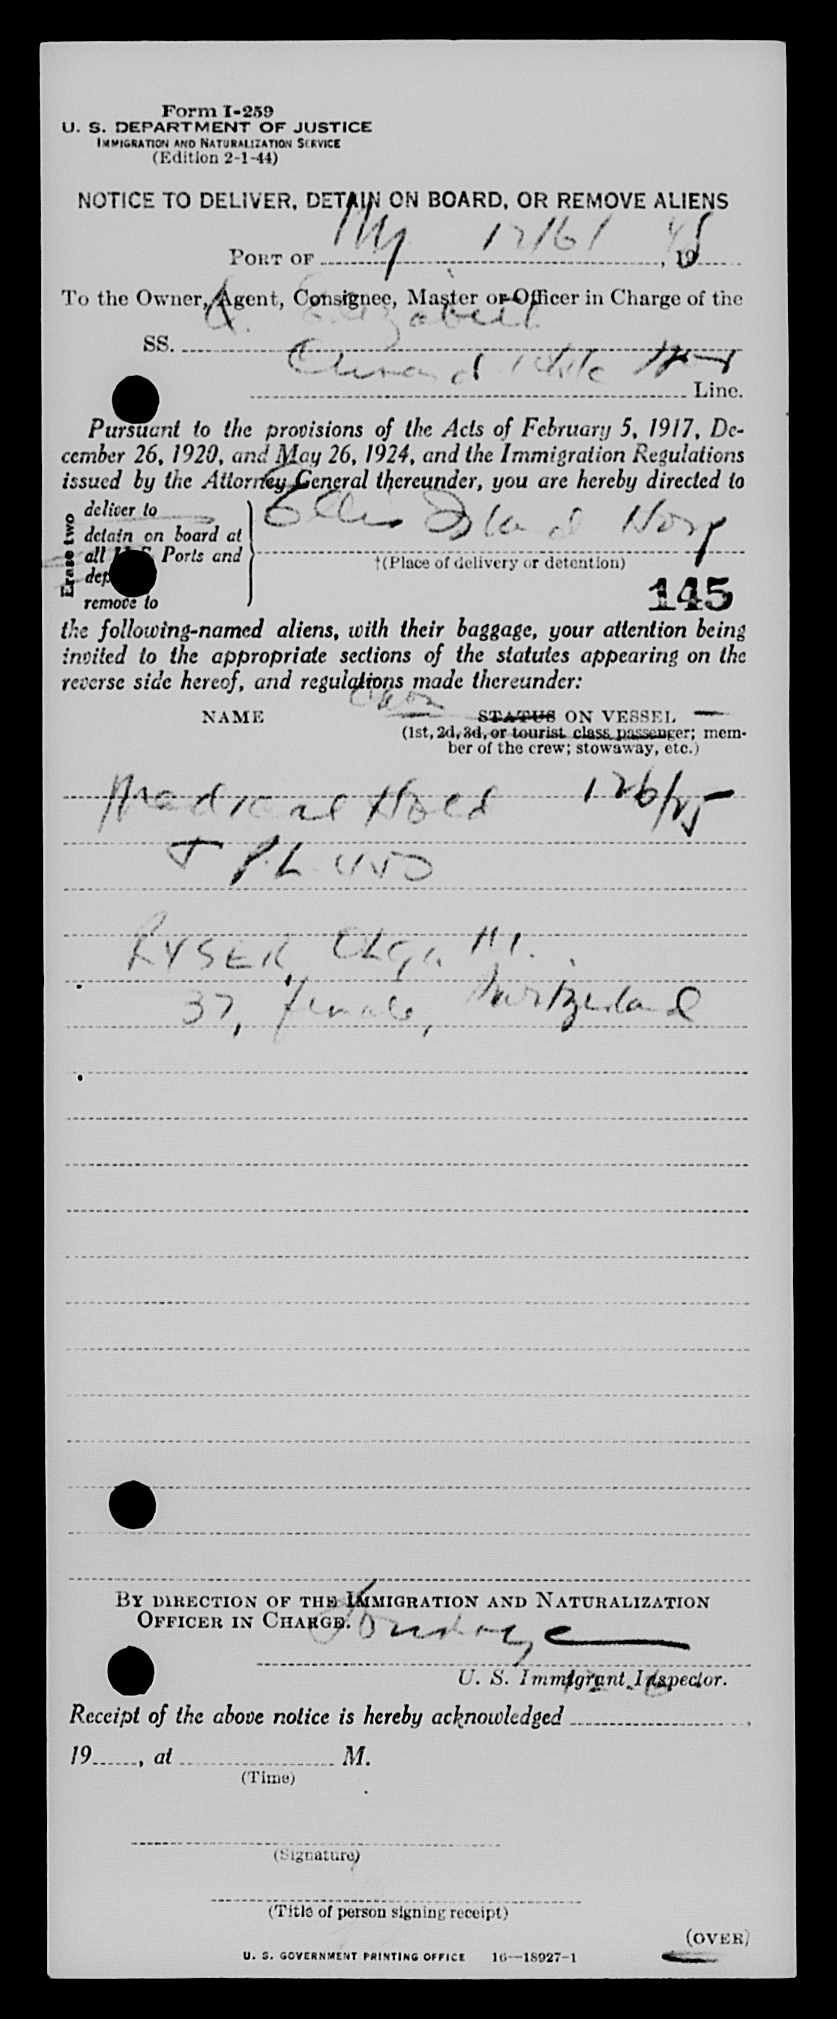 Form I-259
U. S. DEPARTMENT OF JUSTICE
IMMIGRATION AND NATURALIZATION SERVICE
(Edition 2-1-44)
NOTICE TO DELIVER, DETAIN ON BOARD, OR REMOVE ALIENS
PORT OF NY 12/6/ 1948
To the Owner, Agent, Consignee, Master or Officer in Charge of the
SS. Q. Elizabeth
Cunard White Star Line.
Pursuant to the provisions of the Acts of February 5, 1917, De-
cember 26, 1920, and May 26, 1924, and the Immigration Regulations
issued by the Attorney General thereunder, you are hereby directed to
Erase two
deliver to
detain on board at
all U.S. Ports and
remove to
Ellis Island Hosp
†(Place of delivery or detention)
145
the following-named aliens, with their baggage, your attention being
invited to the appropriate sections of the statutes appearing on the
reverse side hereof, and regulations made thereunder:
NAME
STATUS ON VESSEL
(1st, 2d, 3d, or tourist class passenger; mem-
ber of the crew; stowaway, etc.)
Medical Hold 126/25
RYSER, Olga M.
37, female, Switzerland
BY DIRECTION OF THE IMMIGRATION AND NATURALIZATION
OFFICER IN CHARGE.
U. S. Immigrant Inspector.
Receipt of the above notice is hereby acknowledged ,
19 , at M.
(Time)
(Signature)
(Title of person signing receipt)
(OVER)
U. S. GOVERNMENT PRINTING OFFICE 16—18927-1